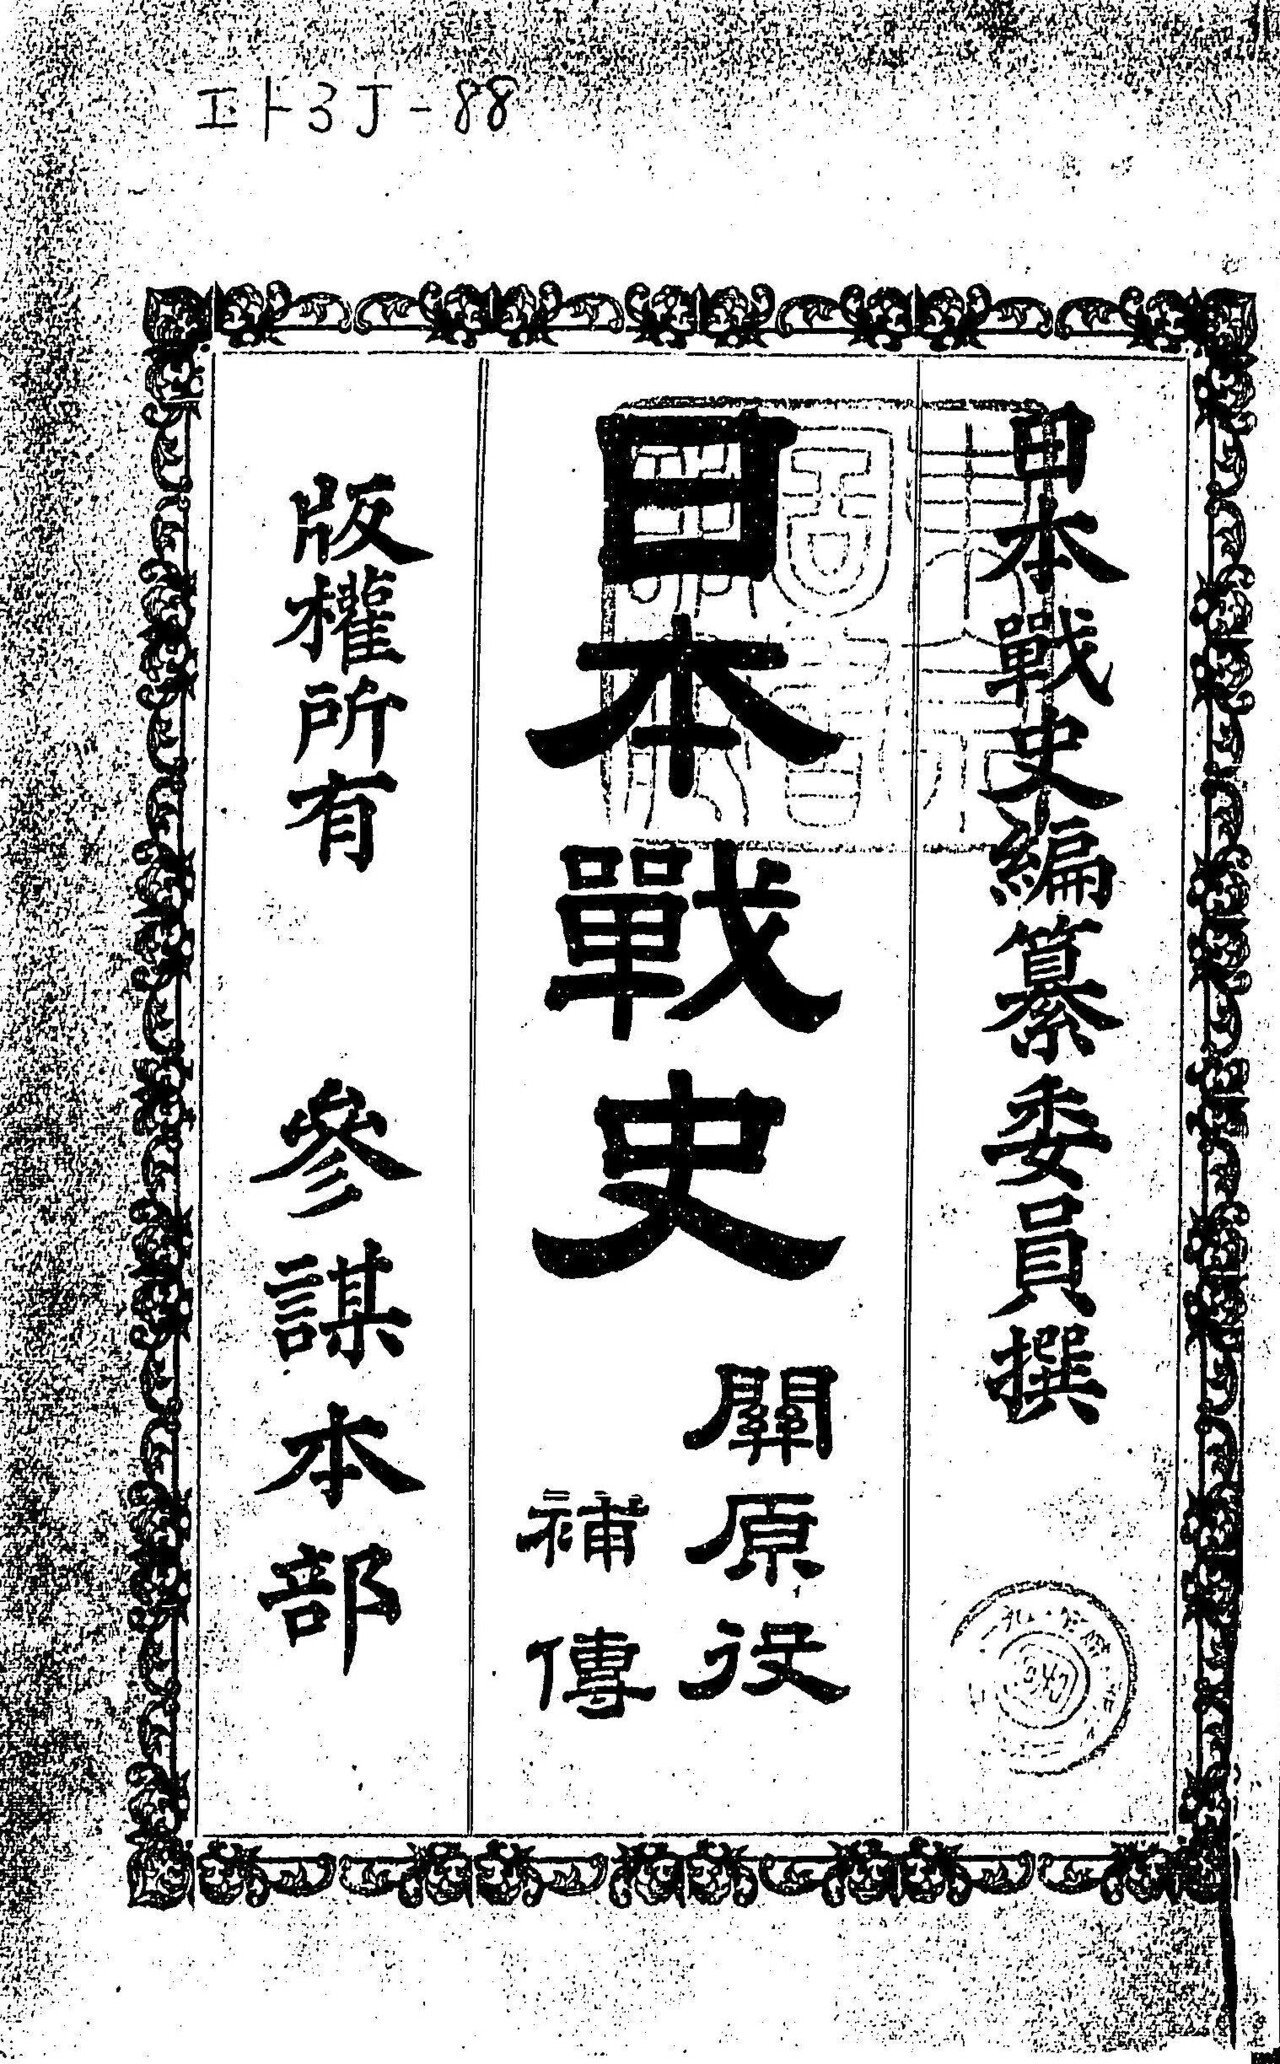 エト3J-88
日本戰史編纂委員撰
日本戰史
關原役
補傳
版權所有
參謀本部